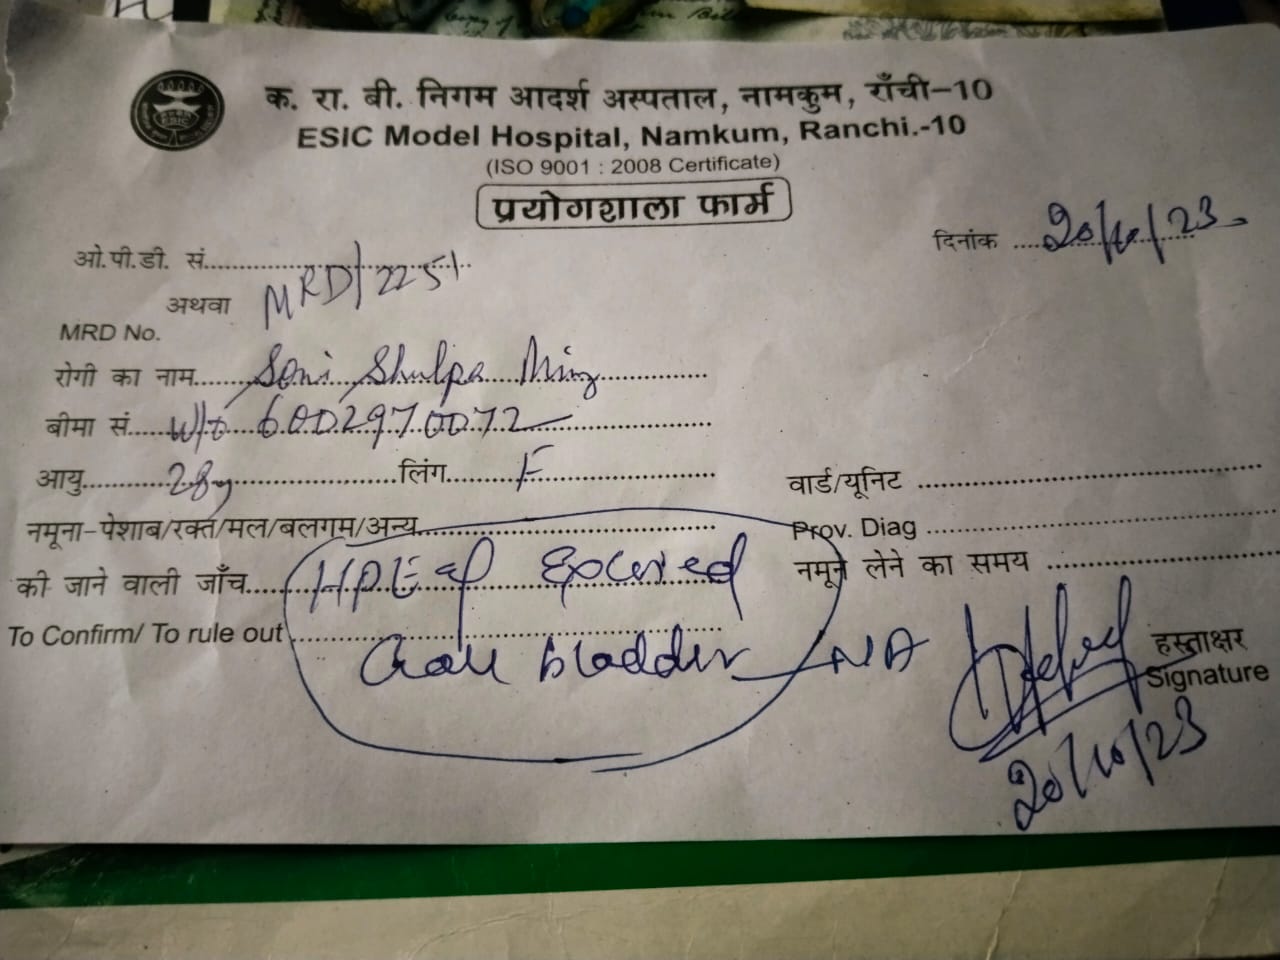 क. रा. बी. निगम आदर्श अस्पताल, नामकुम, राँची–10
ESIC Model Hospital, Namkum, Ranchi.-10
(ISO 9001 : 2008 Certificate)
प्रयोगशाला फार्म
दिनांक ....20/10/23
ओ.पी.डी. सं.
अथवा MRD/2251
MRD No.
रोगी का नाम.......Soni Shulpa Minz
बीमा सं......W/o 6002970072
आयु..........28y लिंग.........F
वार्ड/यूनिट
नमूना-पेशाब/रक्त/मल/बलगम/अन्य
Prov. Diag
की जाने वाली जाँच.....HPE of Excised
नमूने लेने का समय
To Confirm/ To rule out
Gall bladder – NA
हस्ताक्षर
Signature
20/10/23